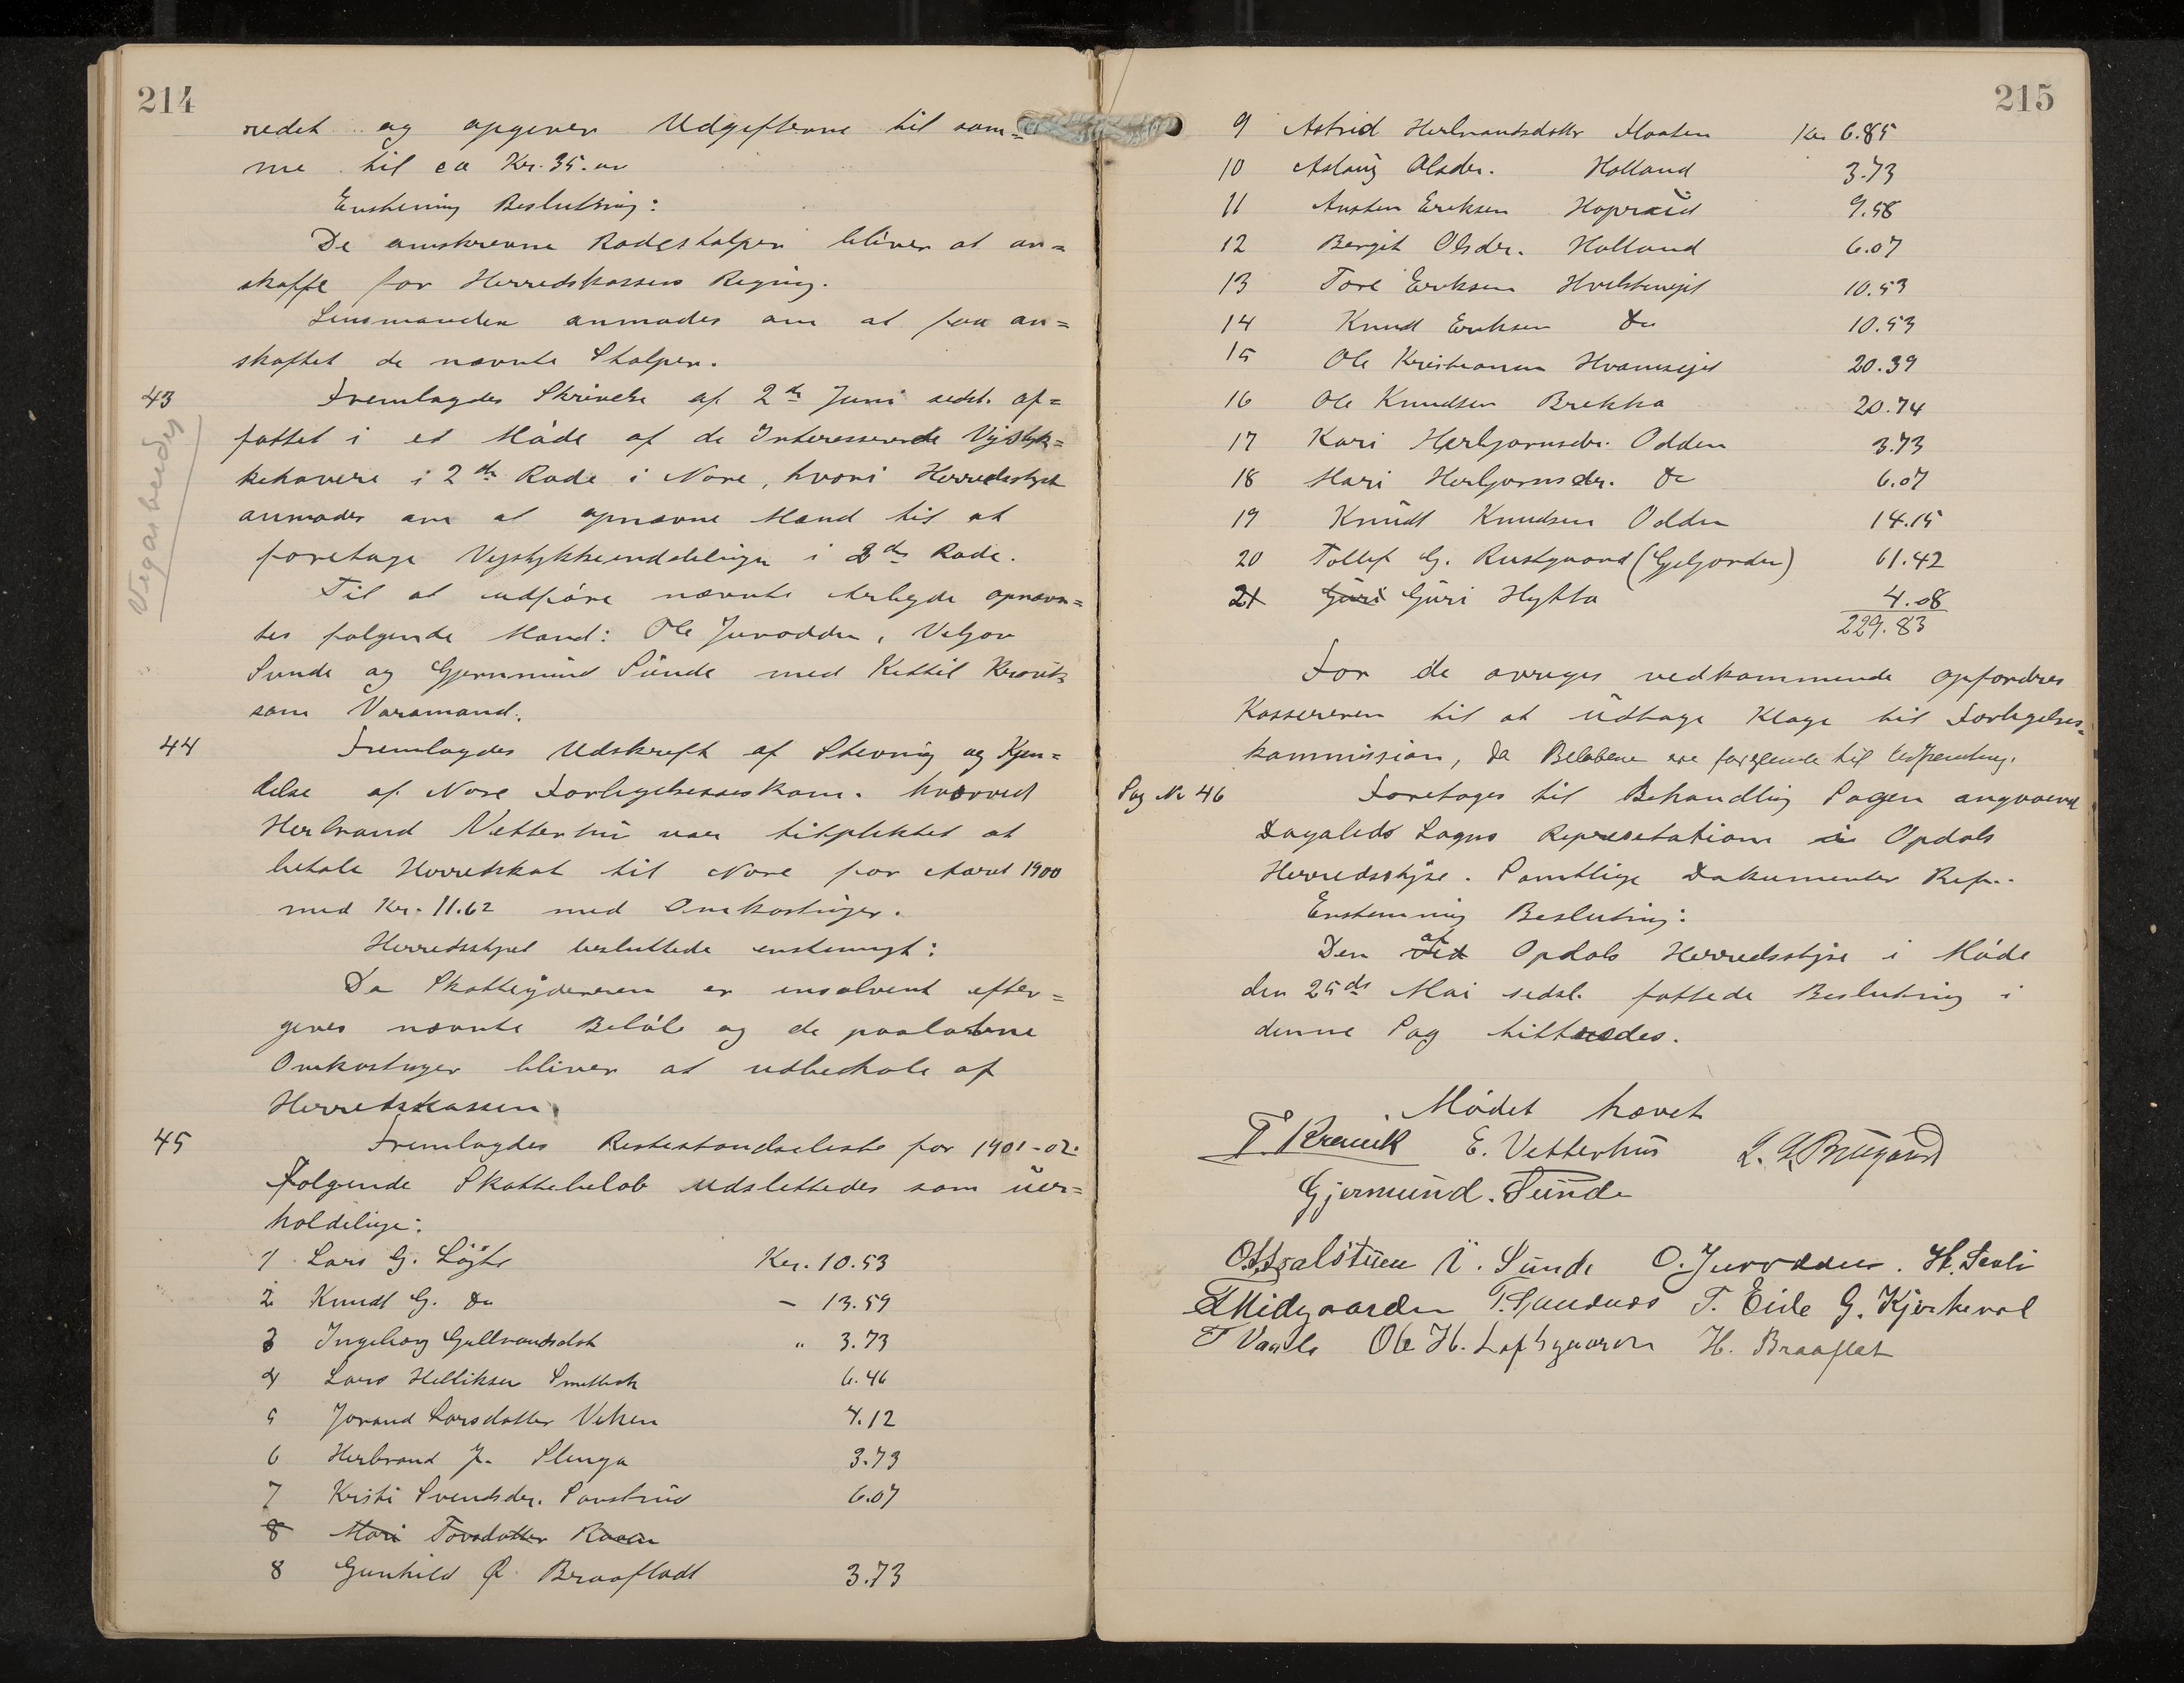 214
redet og opgiver Udgifterne til sam=
me til ca Kr. 35.00
Enstemmig Beslutning:
De omskrevne Rodestolper bliver at an=
skaffe for Herredskassens Regning.
Lensmanden anmodes om at faa an=
skaffet de nævnte Stolper.
43 Fremlagdes Skrivelse af 2den Juni sidstl. af=
fattet i et Møde af de Interesserende Vejstyk=
kehavere i 2den Rode i Nore, hvori Herredsstyret
anmodes om at opnævne Mænd til at
foretage Vejstykkeinddelingen i 2den Rode.
Vegarbeider
Til at udføre nævnte Arbejde opnævn=
tes følgende Mænd: Ole Juvodden, Veljon
Sunde og Gjermund Sunde med Kittil
som Varamand.
44 Fremlagdes Udskrift af Stevning og Kjen=
delse af Nore Forligelseskom. hvorved
Herbrand Vetterhus var tilpligtet at
betale Herredskat til Nore for Aaret 1900
med Kr. 11.62 med Omkostninger.
Herredsstyret besluttede enstemmigt:
Da Skatteyderen er insolvent efter=
gives nævnte Beløb og de paaløbne
Omkostninger bliver at udbetale af
Herredskassen.
45 Fremlagdes Restestandseliste for 1901-02.
Følgende Skattebeløb udslettedes som uer=
holdelige:
1 Lars G. Løgte Kr. 10.53
2 Knudt G. do - 13.59
3 Ingeborg Gullbrandsdott " 3.73
4 Lars Helliksen 6.46
5 Jorand Larsdatter Viken 4.12
6 Herbrand J. Slenga 3.73
7 Kristi Svendsdr. 6.07
8 Mari Torsdatter Raaen
8 Gunhild Ø. Braafladt 3.73
215
9 Astrid Herbrandsdottr Moaten Kr. 6.85
10 Aslaug Olsdr. Holland 3.73
11 Austen Eriksen 9.58
12 Bergit Olsdr. Holland 6.07
13 Tore Eriksen 10.53
14 Knud Eriksen do 10.53
15 Ole Kristiansen 20.39
16 Ole Knudsen Brekka 20.74
17 Kari Herbjørnsdr. Odden 3.73
18 Mari Herbjørnsdr. do 6.07
19 Knudt Knudsen Odden 14.15
20 Tollef G. Rustgaard 61.42
21 Guri Guri Hytta 4.08
229.83
For de øvriges vedkommende opfordres
Kassereren til at udtage Klage til Forligelses=
kommission, da Beløbene ere til Udpantning.
Sag No 46 Foretages til Behandling Sagen angaaende
Dagalids Sogns Represetation i Opdals
Herredsstyre. Samtlige Dokumenter Ref..
Enstemmig Beslutning:
Den ved af Opdals Herredsstyre i Møde
den 25de Mai sidstl. fattede Beslutning i
denne Sag tiltrædes.
Mødet hævet
T. Kravik E. Vetterhus
Gjermund. Sunde
V. Sunde O. Juvodden. H.
T. Eide G. Kjerkevol
Ole H. Loftsgaarden H. Braaflat